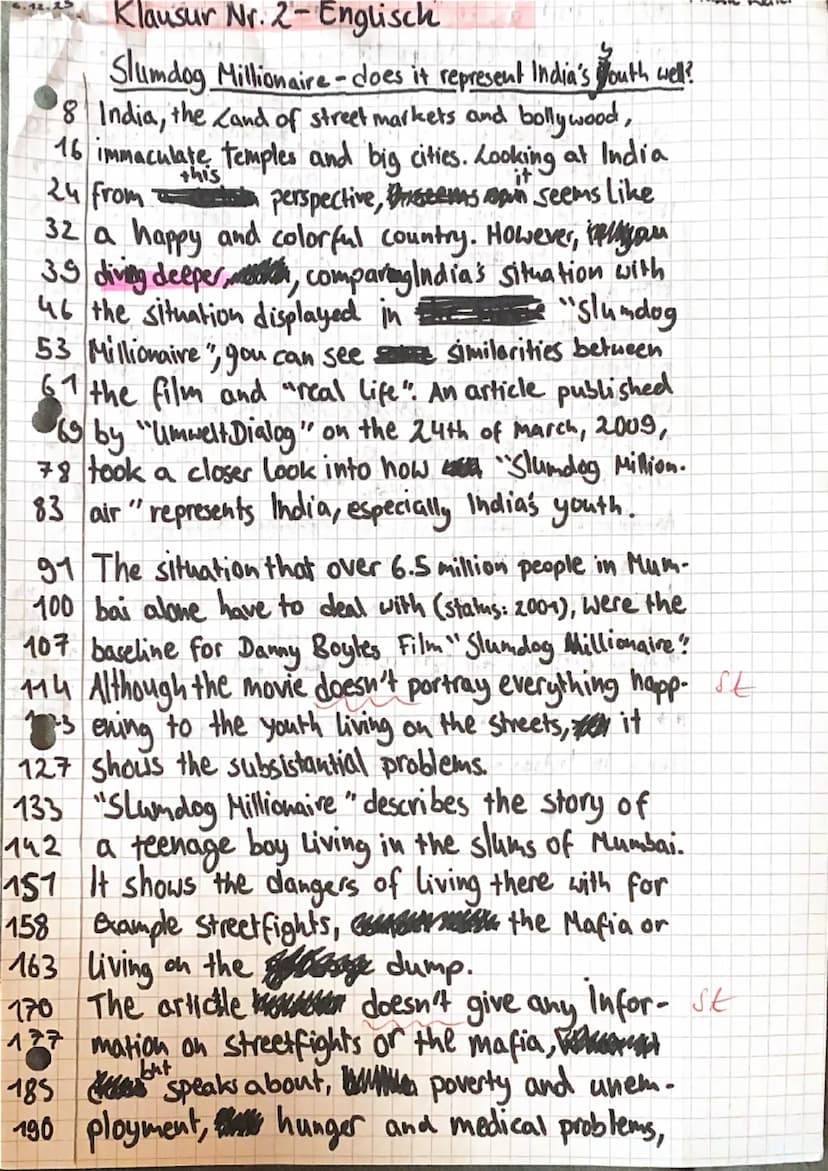 6.12.23
Klausur Nr. 2 - Englisch
Slumdog Millionaire - does it represent India's youth well?
8 India, the Land of street markets and bollywood,
16 immaculate temples and big cities. Looking at India
24 from this perspective, it seems like
32 a happy and colorful country. However,
39 diving deeper, , comparing India's situation with
46 the situation displayed in "Slumdog
53 Millionaire", you can see similarities between
61 the film and "real life". An article published
69 by "UmweltDialog" on the 24th of march, 2009,
78 took a closer look into how "Slumdog Million-
83 air" represents India, especially India's youth.
91 The situation that over 6.5 million people in Mum-
100 bai alone have to deal with (status: 2001), were the
107 baseline for Danny Boyles Film "Slumdog Millionaire".
114 Although the movie doesn't portray everything happ- st
ening to the youth living on the streets, it
127 shows the subsistantial problems.
133 "Slumdog Millionaire" describes the story of
142 a teenage boy living in the slums of Mumbai.
151 It shows the dangers of living there with for
158 example streetfights, the Mafia or
163 living on the dump.
170 The article doesn't give any Infor- st
177 mation on streetfights or the mafia,
185 but speaks about, poverty and unem-
190 ployment, hunger and medical problems,